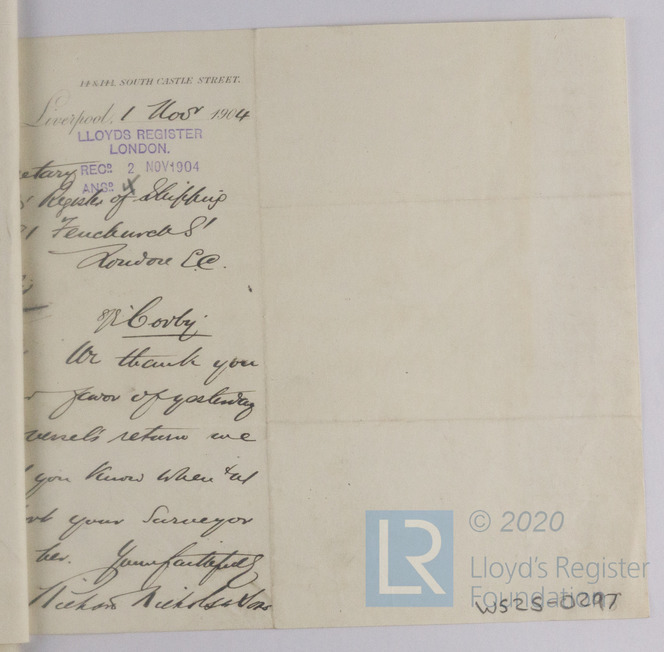 SOUTH CASTLE STREET.
Liverpool, 1 Novr 1904
LLOYDS REGISTER
LONDON.
RECD 2 NOV 1904
ANSD
etary
Register of Shipping
71 Fenchurch St
London E.C.
Corby
We thank you
favor of yesterday
vessel's return we
you know when & at
your Surveyor
her. Yours faithfully
Richard Nicholson & Son
LR
© 2020
Lloyd's Register
Foundation
WS25-0297